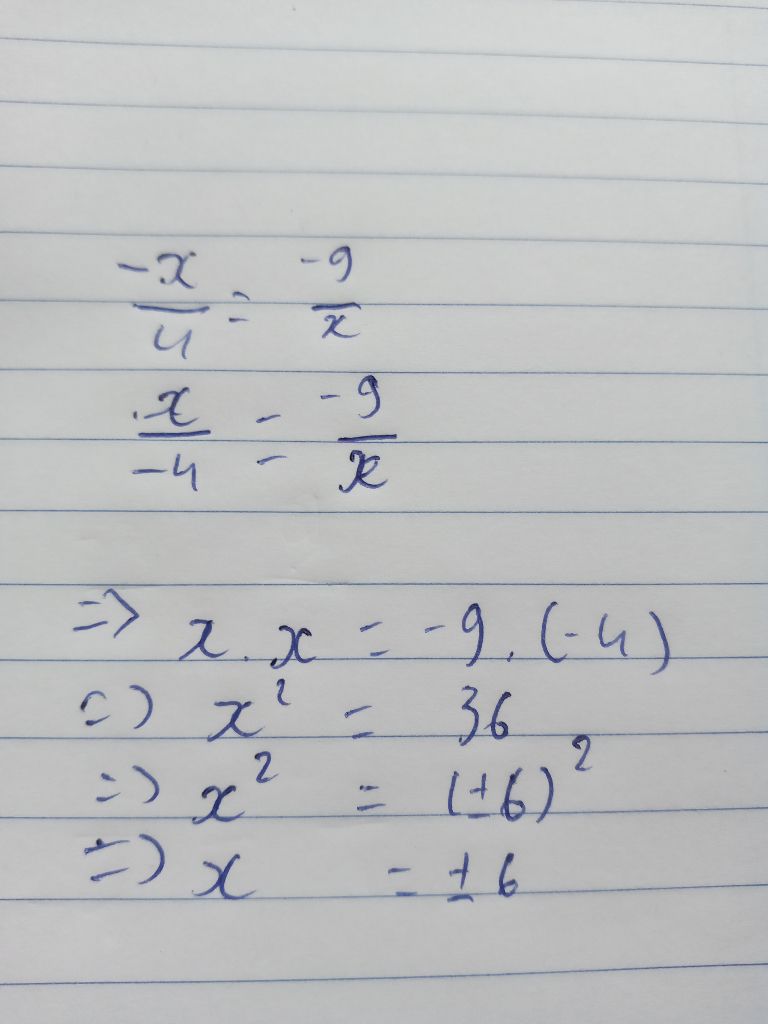 -x/4 = -9/x
x/-4 = -9/x
=> x . x = -9 . (-4)
=> x² = 36
=> x² = (±6)²
=> x = ±6